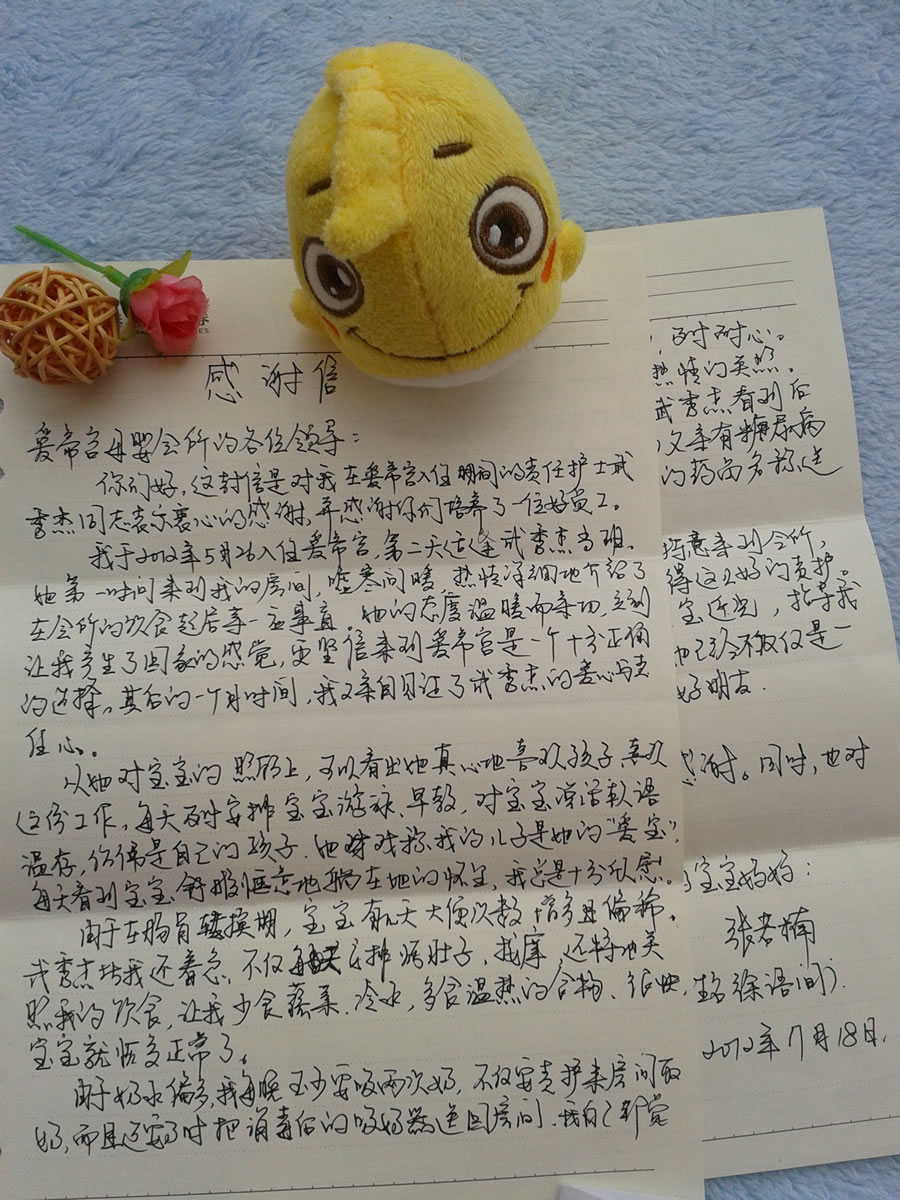 感谢信
爱帝宫母婴会所的各位领导：
你们好，这封信是对我在爱帝宫入住期间的责任护士武
秀杰同志表示衷心的感谢，并感谢你们培养了一位好员工。
我于2012年5月26入住爱帝宫，第二天便逢武秀杰当班。
她第一时间来到我的房间，嘘寒问暖，热情详细地介绍了
在会所的饮食起居等一应事宜。她的态度温暖而亲切，立刻
让我产生了回家的感觉，更坚信来到爱帝宫是一个十分正确
的选择。其后的一个月时间，我又亲自见证了武秀杰的爱心与责
任心。
从她对宝宝的照顾上，可以看出她真心地喜欢孩子，喜欢
这份工作，每天及时安排宝宝游泳、早教，对宝宝说话软语
温存，仿佛是自己的孩子。她常戏称我的儿子是她的“爱宝”，
每天看到宝宝舒服惬意地躺在她的怀里，我总是十分欣慰。
由于在肠胃转换期，宝宝有几天大便次数增多且偏稀。
武秀杰比我还着急，不仅每天安排焐肚子、按摩，还特地关
照我的饮食，让我少食蔬菜、冷水，多食温热的食物、很快，
宝宝就恢复正常了。
由于奶水偏多，我每晚至少要吸两次奶，不仅要责护来房间取
奶，而且还要及时把消毒后的吸奶器送回房间，我自己都觉
，及时耐心。
热情的关照。
武秀杰看到后
父亲有糖尿病
的药品名称送
特意来到会所，
得这么好的责护。
宝近况，指导我
她已经不仅仅是一
好朋友。
感谢。同时，也对
宝宝妈妈：
张若楠
徐语间）
2012年7月18日.